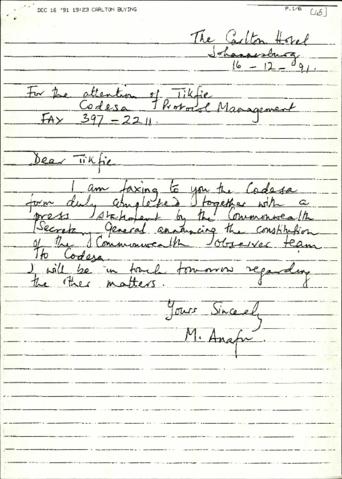 DEC 16 '91 19:23 CARLTON BUYING P.1/6
[46]
The Carlton Hotel
Johannesburg
16 - 12 - 91.
For the attention of Tikfie
Codesa Protocol Management
FAX 397-2211.
Dear Tikfie
I am faxing to you the Codesa
form duly completed together with a
press statement by the Commonwealth
Secretary General announcing the constitution
of the Commonwealth observer team
to Codesa.
I will be in touch tomorrow regarding
the other matters.
Yours Sincerely
M. Anafu